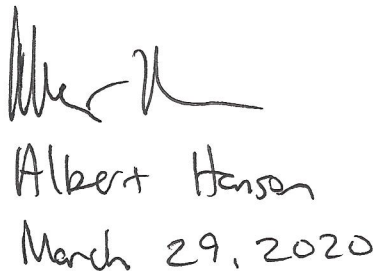 Albert Hanson
March 29, 2020